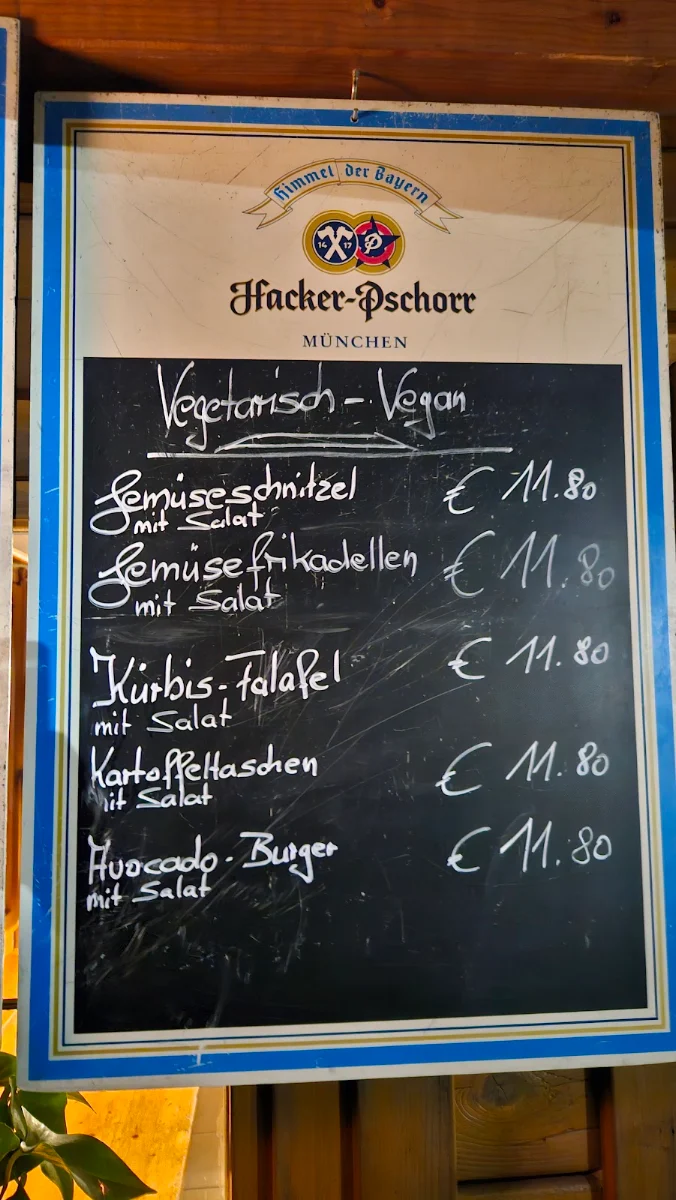 Himmel der Bayern
14 17 P
Hacker-Pschorr
MÜNCHEN
Vegetarisch - Vegan
Gemüseschnitzel € 11.80
mit Salat
Gemüsefrikadellen € 11.80
mit Salat
Kürbis-Falafel € 11.80
mit Salat
Kartoffeltaschen € 11.80
it Salat
Avocado-Burger € 11.80
mit Salat